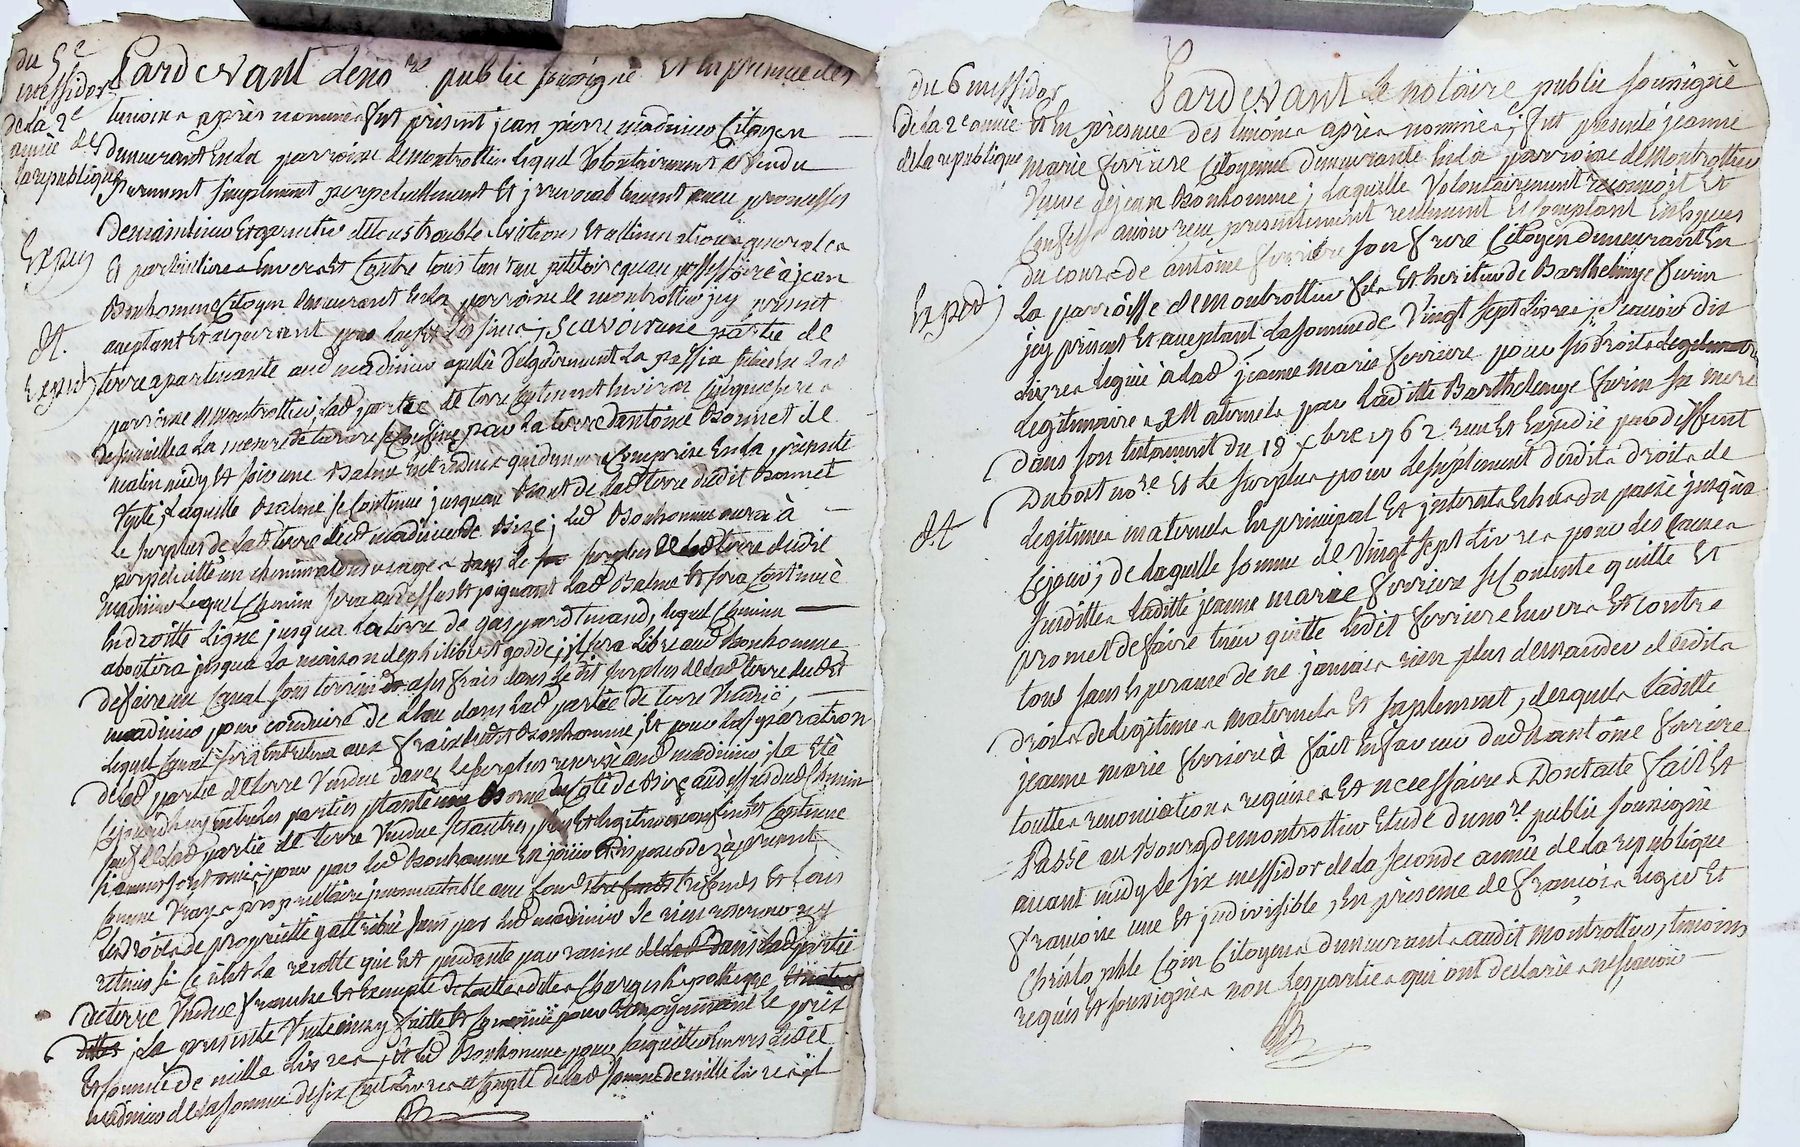 du 5e
messidor
de la 2e
année de
la republique
Expen
dt.
Exped
Pardevant le no.re public soussigné Et En presence des
temoins après nommés fut présent jean pierre madinier Citoyen
demeurant En la parroisse de montrottier lequel volontairement a vendu
purement simplement perpetuellement Et jrrevocablement avec promesses
de maintenir Et garentir de tous troubles Evictions Et alliénations generales
Et particulieres Envers Et Contre tous tant au petitoire qu'au possessoire à jean
Bonhomme Citoyen demeurant En la parroisse de montrottier jcy present
acceptant Et acquerant pour luy Et les siens, scavoir une partie de
terre apartenante aud madinier apellée la passia
parroisse de montrottier, lad partie de terre Contenant Environ Cinq
la mesure de se Confine par la terre d'antoine Bonnet de
matin midy Et soir une Balme Entredeux qui demeure Comprise En la présente
vente, laquelle Balme se Continue jusqu'au Bout de lad terre dudit Bonnet
le surplus de lad terre dud madinier de Bize; led Bonhomme aura à
perpetuité un chemin dans le surplus de lad terre dudit
madinier lequel chemin sera au dessus Et joignant lad Balme Et sera Continué
En droitte ligne jusqu'a la terre de gaspard lequel chemin
aboutira jusqua la maison de philibert jl sera libre aud Bonhomme
de faire un Canal sous terrein a ses frais dans le dit surplus de lad terre dudit
madinier pour Conduire de l'Eau dans lad partie de terre vendüe,
lequel Canal sera Entretenu aux fraix dudit Bonhomme, Et pour la séparation
de lad partie de terre vendue davec le surplus reservé aud madinier, jla Eté
Cejourdhuy Entre les parties planté une Borne du Coté de Bize au dessus dud Chemin
sauf de lad partie de terre vendue ses autres plus Et legitimes confins Et Contenue
si aucuns sont omis, pour par led Bonhomme En jouir Et disposer dez à présent
Comme vray proprietaire jncommutable avec fonds trefonds Et tous
les droits de proprietté y attribué sans par led madinier se rien reserver ny
retenir si ce n'est la recolte qui Est pendante par racine dans lad partie
de terre vendue franche Et Exempte de touttes dittes Charges hipotheque
la presente vente ainsy faitte Et Convenüe pour Et moyennant le prix
Et somme de mille livres, Et led Bonhomme pour les ledit
madinier de la somme de six Cent livres a Compte de lad somme de mille livres jl
du 6 messidor
de la 2e année
de la republique
Exped
dt
Pardevant Le notaire public soussigné
Et En presence des temoins après nommés; fut presente jeanne
marie ferriere Citoyenne demeurante En la parroisse de montrottier
veuve de jean Bonhomme; laquelle volontairement reconnoit Et
Confesse avoir reçu presentement reellement Et Comptant En Especes
du cours de antoine ferriere son frere Citoyen demeurant En
la parroisse de montrottier fils Et heritier de Barthelemye furin
jcy présent Et acceptant la somme de vingt sept livres, scavoir dix
livres leguée à lad jeanne marie ferriere pour ses droits
legitimaires Maternels par laditte Barthelemye furin sa mere
dans son testament du 18 xbre 1762 reçu Et Expedié par deffunt
Dubost no.re Et le surplus pour le suplement desdits droits de
legitimes maternels En principal Et jnterets Echus du passé jusqu'à
Cejour; de laquelle somme de vingt sept livres pour les Causes
susdittes laditte jeanne marie ferriere se Contente quitte Et
promet de faire tenir quitte ledit ferriere Envers Et Contre
tous sans Esperance de ne jamais rien plus demander desdits
droits de legitimes maternels Et suplement, desquels laditte
jeanne marie ferriere à fait En faveur dudit antoine ferriere
touttes renonciations requises Et necessaires Dont acte fait Et
Passé au Bourg de montrottier Etude du no.re public soussigné
avant midy le six messidor de la seconde année de la republique
francoise une Et jndivisible, En présence de francois leger Et
Christophle Coin Citoyens demeurants audit montrottier, temoins
requis Et soussignés non les parties qui ont déclaré ne scavoir